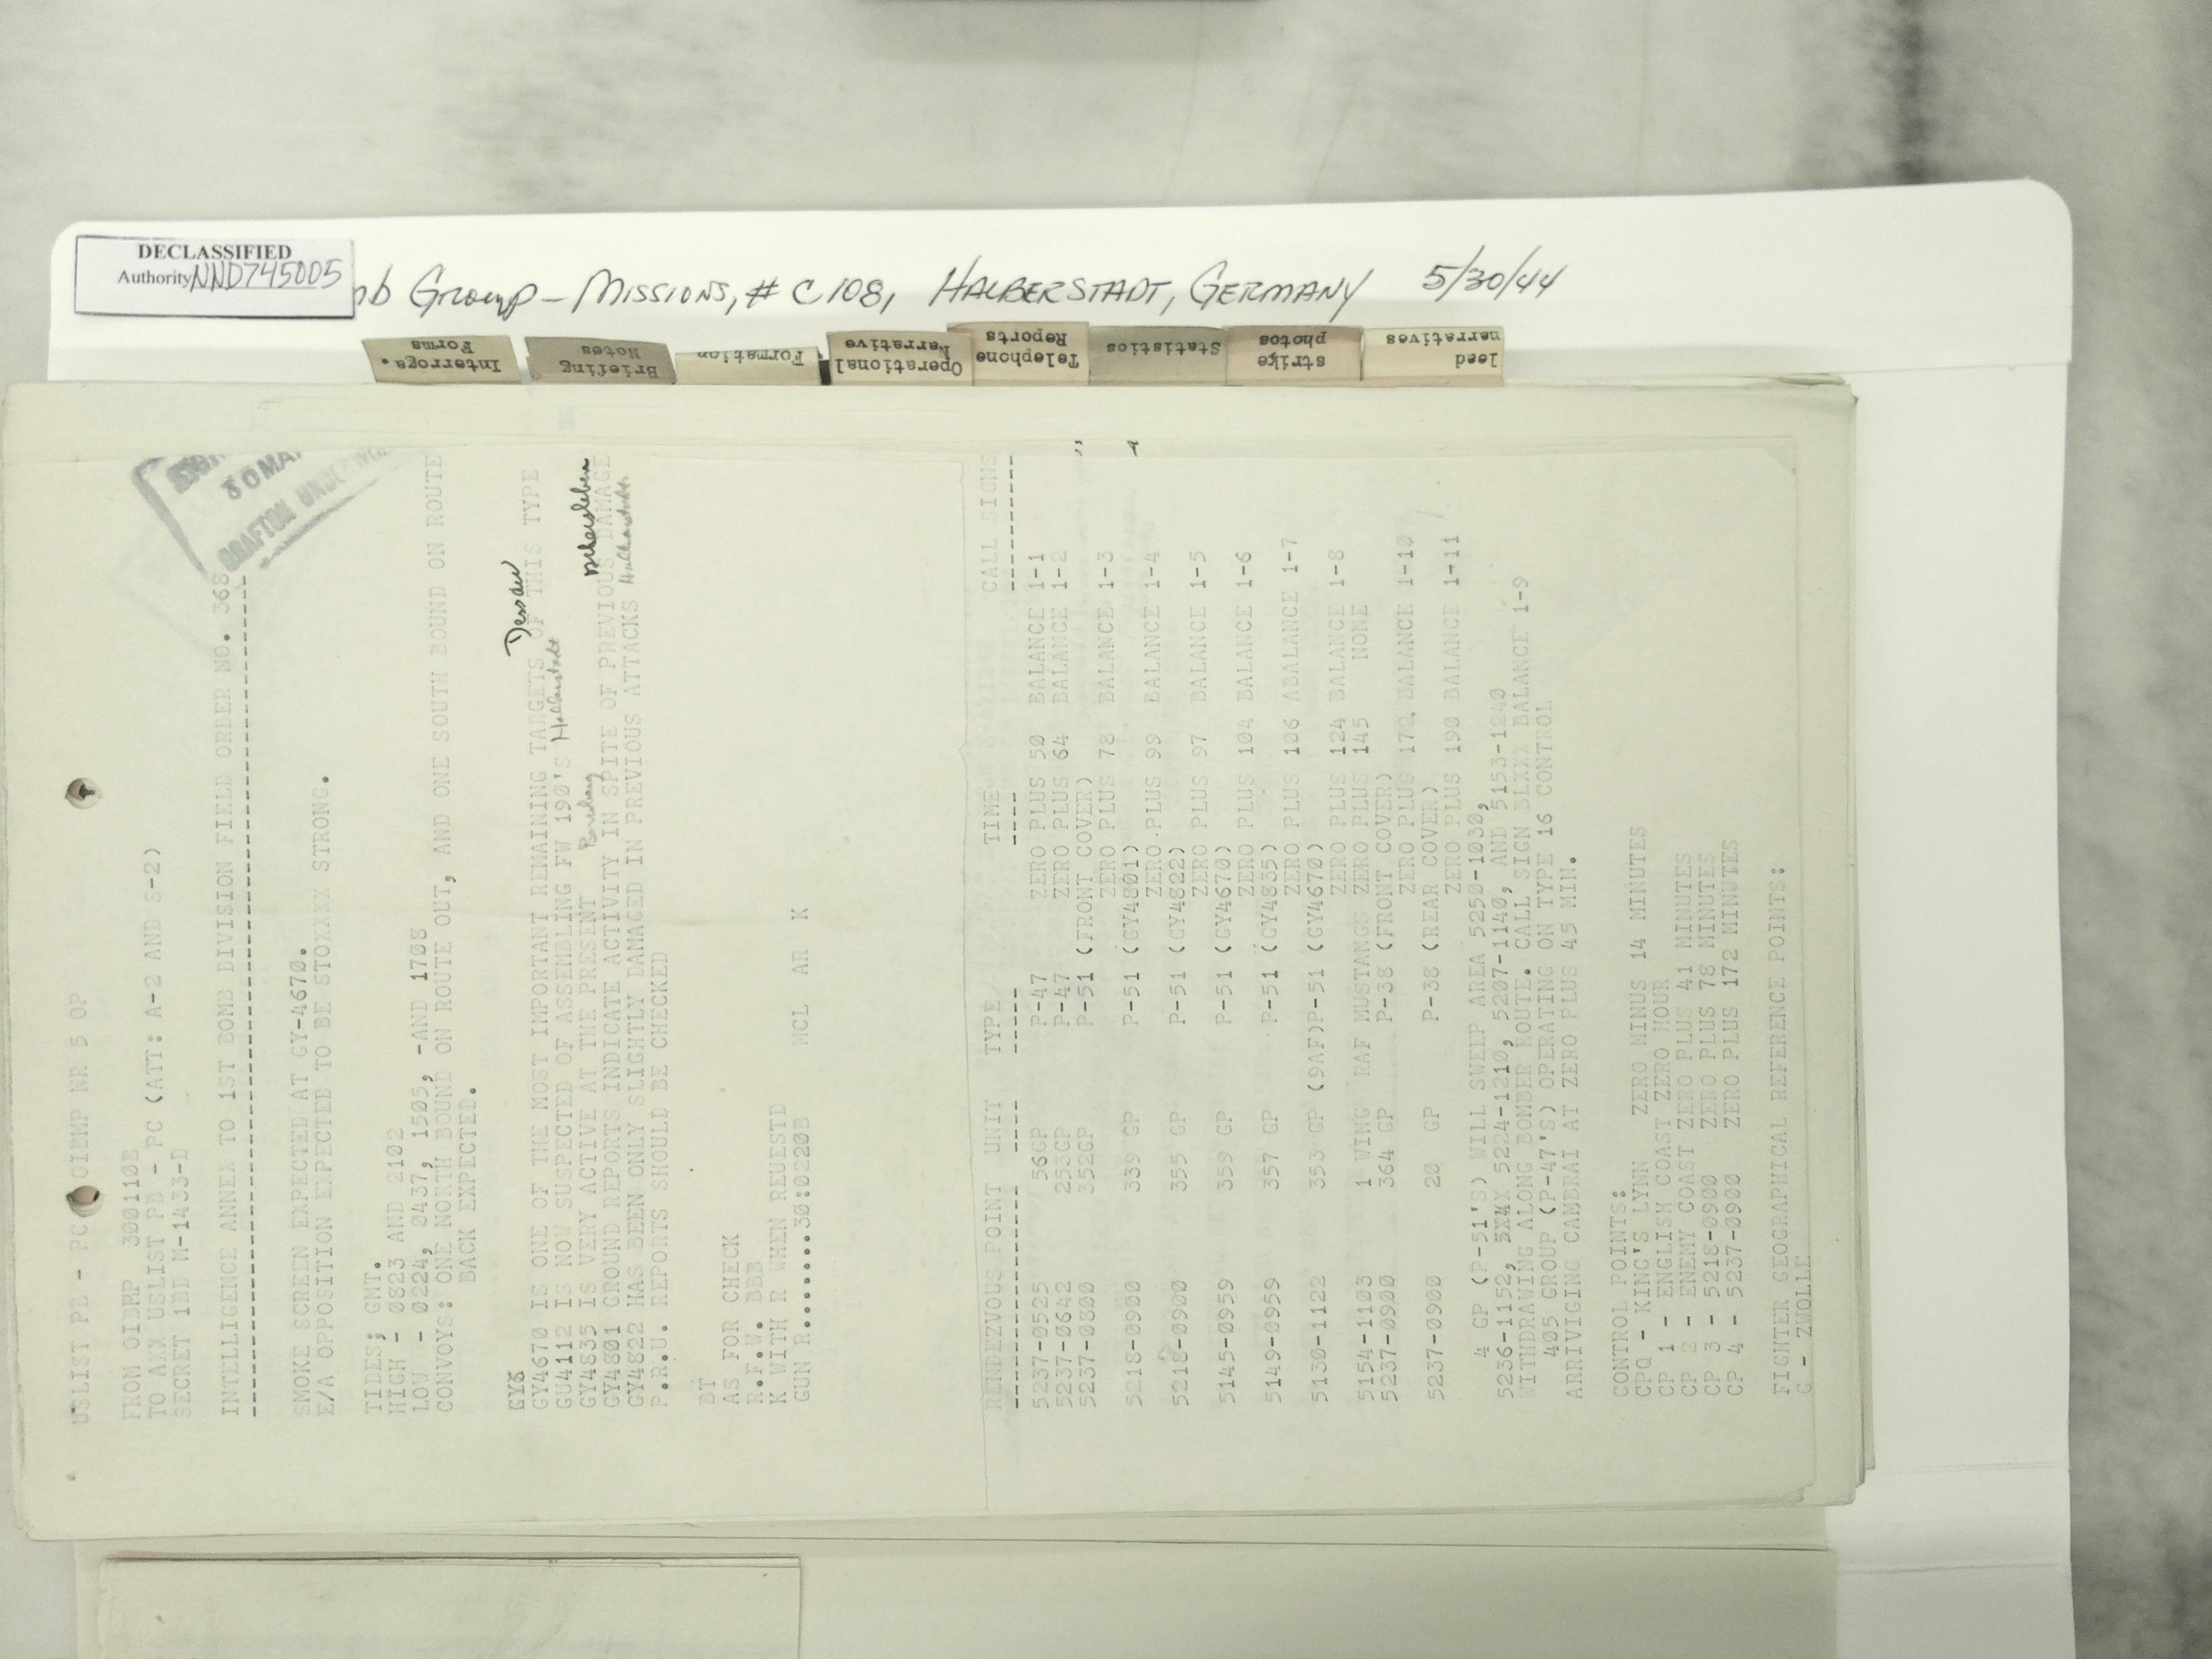 DECLASSIFIED
Authority NND745005
b Group - Missions, # C108, Halberstadt, Germany 5/30/44
Interroga.
Forms
Briefing
Notes
Formation
Operational
Narrative
Telephone
Reports
Statistics
strike
photos
lead
narratives
30 MA
GRAFTON UNDERWO
USLIST PB - PC OIBMP NR 5 OP
FROM OIBMP 300110B
TO AXX USLIST PB - PC (ATT: A-2 AND S-2)
SECRET 1BD M-1433-D
INTELLIGENCE ANNEX TO 1ST BOMB DIVISION FIELD ORDER NO. 368
SMOKE SCREEN EXPECTED AT GY-4670.
E/A OPPOSITION EXPECTED TO BE STOXXXX STRONG.
TIDES; GMT.
HIGH - 0823 AND 2102
LOW - 0224, 0437, 1505, -AND 1708
CONVOYS: ONE NORTH BOUND ON ROUTE OUT, AND ONE SOUTH BOUND ON ROUTE
BACK EXPECTED.
Dessau
GY4670 IS ONE OF THE MOST IMPORTANT REMAINING TARGETS OF THIS TYPE
GU4112 IS NOW SUSPECTED OF ASSEMBLING FW 190'S Halberstadt
GY4835 IS VERY ACTIVE AT THE PRESENT
GY4801 GROUND REPORTS INDICATE ACTIVITY IN SPITE OF PREVIOUS DAMAGE
GY4822 HAS BEEN ONLY SLIGHTLY DAMAGED IN PREVIOUS ATTACKS
P.R.U. REPORTS SHOULD BE CHECKED
BT
AS FOR CHECK
R.F.W. BEB
K WITH R WHEN REUESTD MCL AR K
GUN R.......30:0220B
RENDEZVOUS POINT UNIT TYPE TIME CALL SIGNS
5237-0525 56GP P-47 ZERO PLUS 50 BALANCE 1-1
5237-0642 253GP P-47 ZERO PLUS 64 BALANCE 1-2
5237-0800 352GP P-51 (FRONT COVER)
ZERO PLUS 78 BALANCE 1-3
5218-0900 339 GP P-51 (GY4801)
ZERO PLUS 99 BALANCE 1-4
5218-0900 355 GP P-51 (GY4822)
ZERO PLUS 97 BALANCE 1-5
5145-0959 359 GP P-51 (GY4670)
ZERO PLUS 104 BALANCE 1-6
5149-0959 357 GP P-51 (GY4835)
ZERO PLUS 106 ABALANCE 1-7
5130-1122 353 GP (9AF)P-51 (GY4670)
ZERO PLUS 124 BALANCE 1-8
5154-1103 1 WING RAF MUSTANGS ZERO PLUS 145 NONE
5237-0900 364 GP P-38 (FRONT COVER)
ZERO PLUS 172 BALANCE 1-10
5237-0900 20 GP P-38 (REAR COVER)
ZERO PLUS 190 BALANCE 1-11
4 GP (P-51'S) WILL SWEEP AREA 5250-1030,
5236-1152, 5X4X 5224-1210, 5207-1140, AND 5153-1240
WITHDRAWING ALONG BOMBER ROUTE. CALL SIGN BLXXX BALANCE 1-9
405 GROUP (P-47'S) OPERATING ON TYPE 16 CONTROL
ARRIVIGING CAMBRAI AT ZERO PLUS 45 MIN.
CONTROL POINTS:
CPO - KING'S LYNN ZERO MINUS 14 MINUTES
CP 1 - ENGLISH COAST ZERO HOUR
CP 2 - ENEMY COAST ZERO PLUS 41 MINUTES
CP 3 - 5218-0900 ZERO PLUS 78 MINUTES
CP 4 - 5237-0900 ZERO PLUS 172 MINUTES
FIGHTER GEOGRAPHICAL REFERENCE POINTS:
G - ZWOLLE